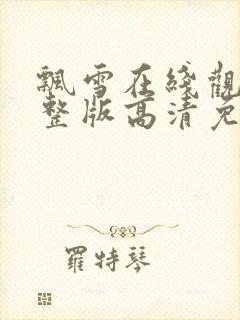 飄雪在綫觀
整版高清免
羅特琴